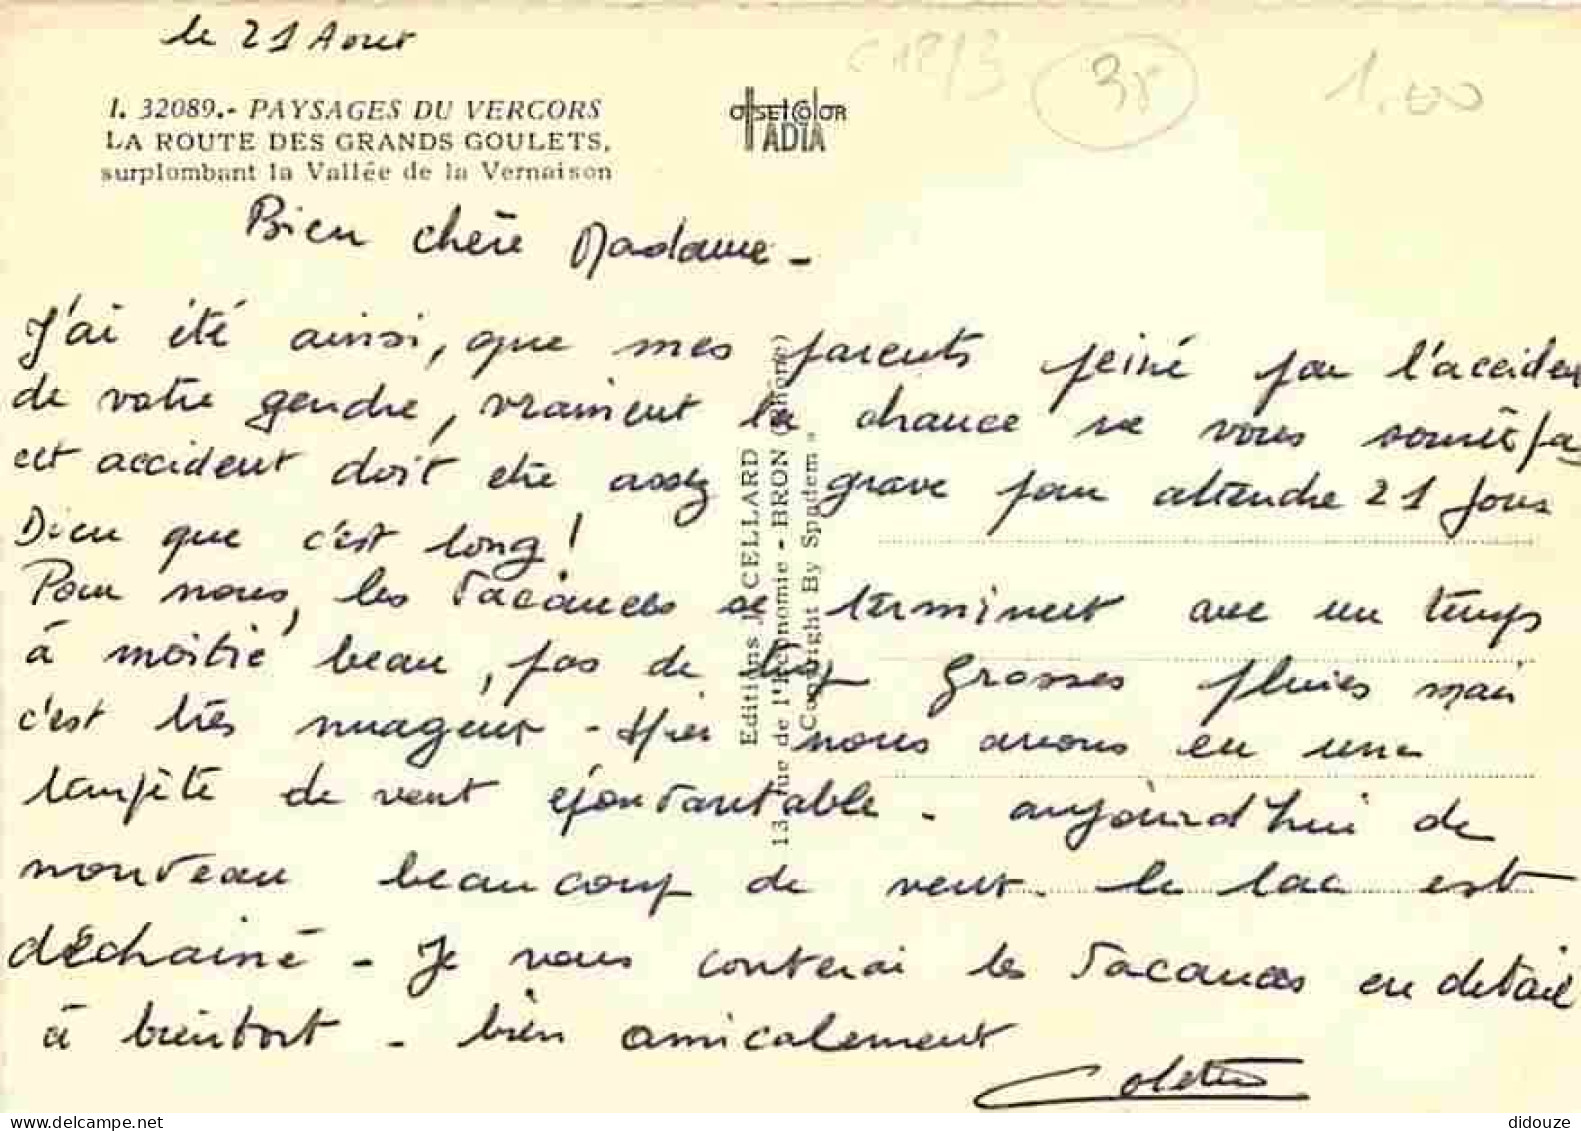 le 21 Aout
C18/3
38
1.00
I. 32089.- PAYSAGES DU VERCORS
LA ROUTE DES GRANDS GOULETS,
surplombant la Vallée de la Vernaison
OffSEt COlOR
ADIA
Bien chère Madame -
J'ai été ainsi, que mes parents peiné par l'acciden
de votre gendre, vraiment la chance ne vous sourit pas
cet accident doit être assez grave pour attendre 21 jours
Dieu que c'est long!
Pour nous, les vacances se terminent avec un temps
à moitié beau, pas de trop grosses pluies mais
c'est très nuageux - Hier nous avons eu une
tempête de vent épouvantable - aujourd'hui de
nouveau beaucoup de vent - le lac est
déchainé - Je vous conterai les vacances en detail
à bientôt - bien amicalement
Colette
Editions J. CELLARD
13, rue de l'Economie - BRON (Rhône)
"Copyright By Spadem"
didouze